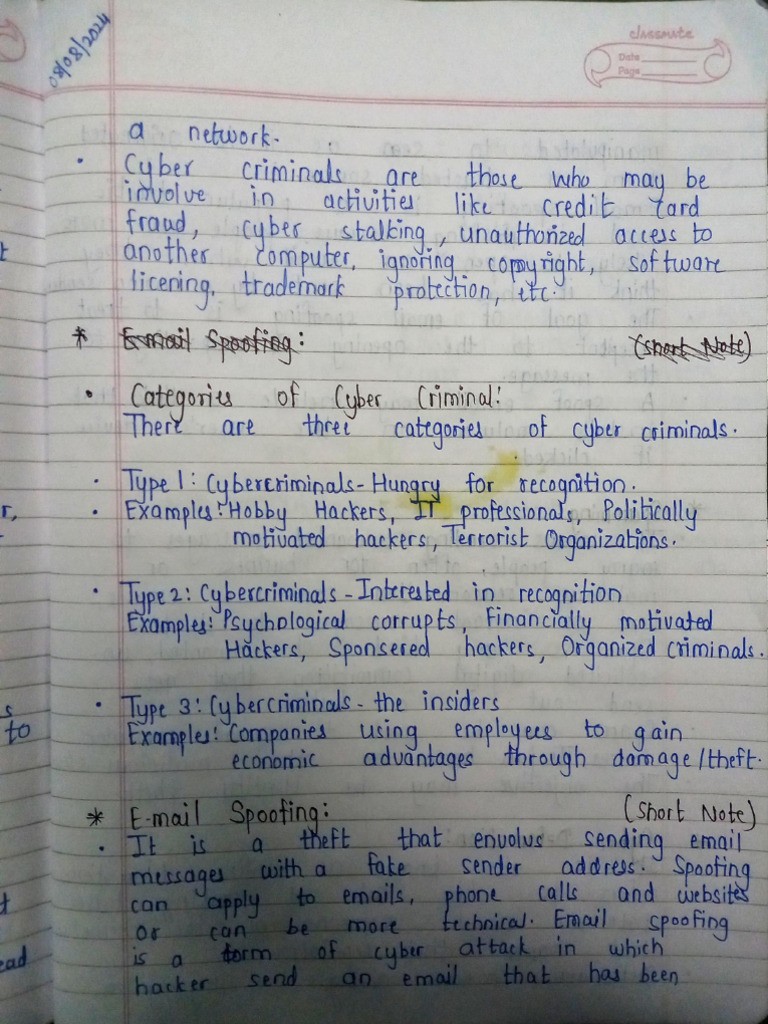 08/08/2024
classmate
Date
Page
a network.
• Cyber criminals are those who may be
involve in activities like credit card
fraud, cyber stalking, unauthorized access to
another computer, ignoring copyright, software
licening, trademark protection, etc.
* E-mail Spoofing: (Short Note)
• Categories of Cyber Criminal:
There are three categories of cyber criminals.
• Type 1: Cybercriminals - Hungry for recognition.
• Examples: Hobby Hackers, IT professionals, Politically
motivated hackers, Terrorist Organizations.
• Type 2: Cybercriminals - Interested in recognition
Examples: Psychological corrupts, Financially motivated
Hackers, Sponsered hackers, Organized criminals.
• Type 3: Cybercriminals - the insiders
Examples: Companies using employees to gain
economic advantages through damage/theft.
* E-mail Spoofing: (Short Note)
• It is a theft that envolus sending email
messages with a fake sender address. Spoofing
can apply to emails, phone calls and websites
or can be more technical. Email spoofing
is a form of cyber attack in which
hacker send an email that has been